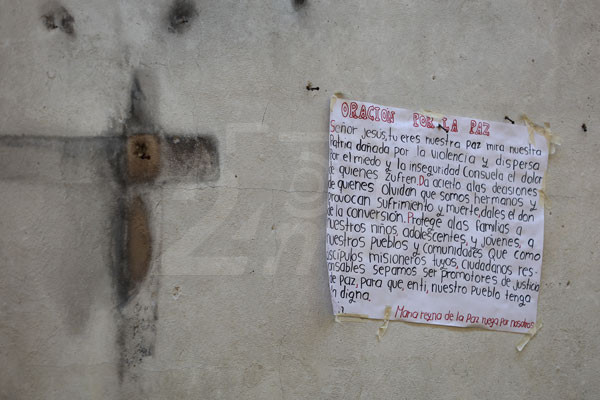 ORACIÓN POR LA PAZ
Señor Jesús, tu eres nuestra paz mira nuestra
Patria dañada por la violencia y dispersa
Por el miedo y la inseguridad Consuela el dolor
de quienes zufren. Da acierto alas decisiones
de quienes olvidan que somos hermanos y
provocan sufrimiento y muerte, dales el don
de la conversión. Protege alas familias a
nuestros niños, adolescentes, y jóvenes, a
nuestros pueblos y comunidades Que como
iscipulos misioneros tuyos, ciudadanos res-
onsables sepamos ser promotores de justicia
de Paz, para que, en ti, nuestro Pueblo tenga
digna.
Maria reyna de la Paz ruega por nosotros